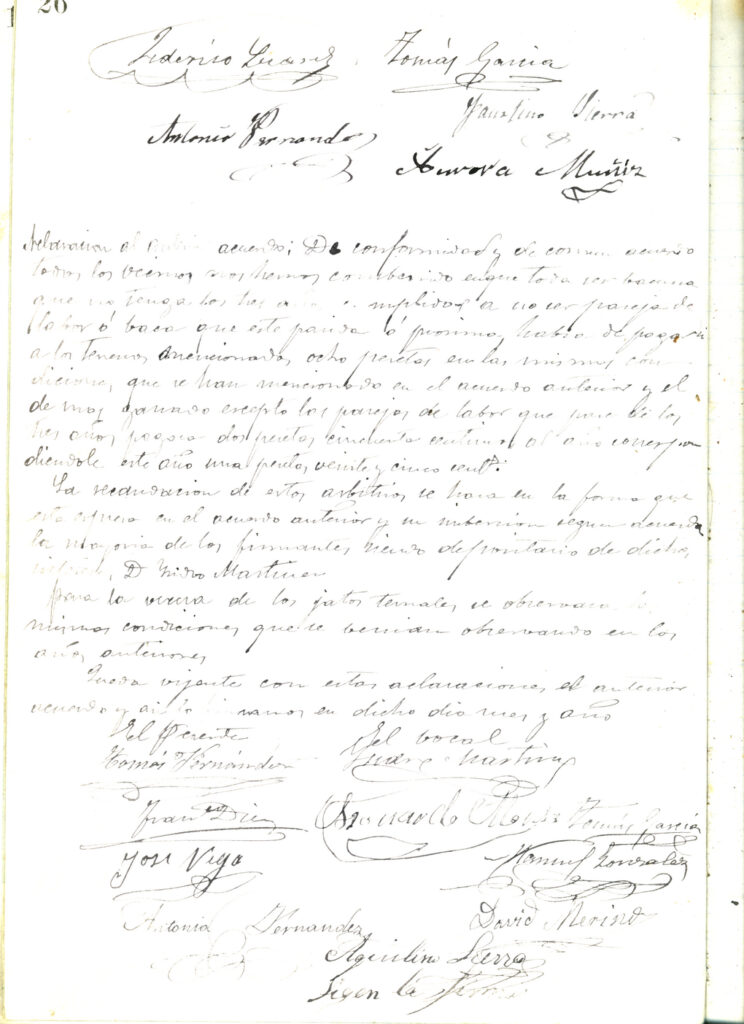 20
Federico Suarez Tomás García
Faustino Sierra
Antonio Fernandez
Aurora Muñiz
Aclaracion al acuerdo; De conformidad y de comun acuerdo
todos los vecinos nos hemos combenido en que toda res bacuna
que no tenga los tres años cumplidos a no ser pareja de
labor ó baca que este parida ó procsima, habra de pagar
a los terrenos mencionados, ocho pesetas en las mismas con
diciones, que se han mencionado en el acuerdo anterior y el
de mas ganado escepto las parejas de labor que pase de los
tres años, pagara dos pesetas cincuenta centimos al año correspon
diendole este año una peseta, veinte y cinco cents:
La recaudacion de estos arbitrios se hara en la forma que
esta espuesa en el acuerdo anterior y su imbersion segun acuerda
la mayoria de los firmantes siendo depositario de dichos
D Isidro Martinez
Para la de los jatos ternales se observara
mismas condiciones que se benian observando en los
años anteriores
Queda vijente con estas aclaraciones el anterior
acuerdo y en dicho dia mes y año
El Gerente El vocal
Tomás Fernández Isidro Martinez
Juan Diez Tomás García
José Vega Manuel Gonzalez
Antonia Fernandez David Merino
Aquilino Sierra
Siguen las firmas